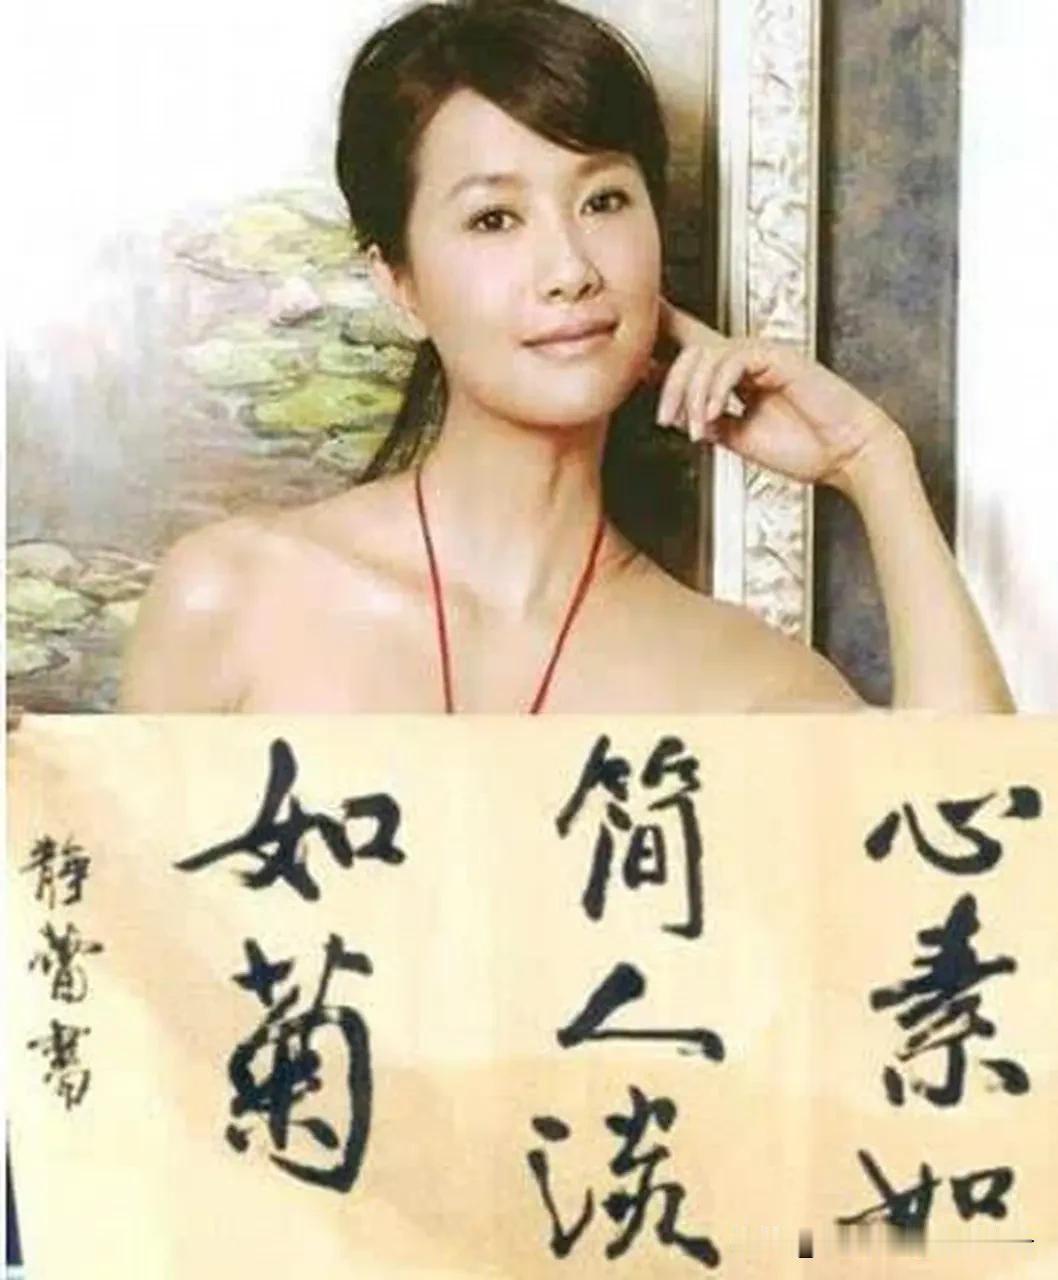 心素如
简人淡
如菊
静蕾書